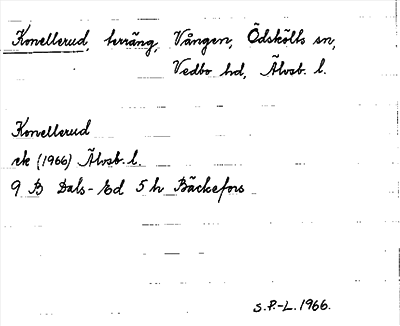 Knnellerud, terräng, Vången, Ödskölts sn,
Vedbo hd, Älvsb. l.
Knnellerud
ek (1966) Älvsb. l.
9 B Dals-Ed 5 h Bäckefors
S.P.-L. 1966.